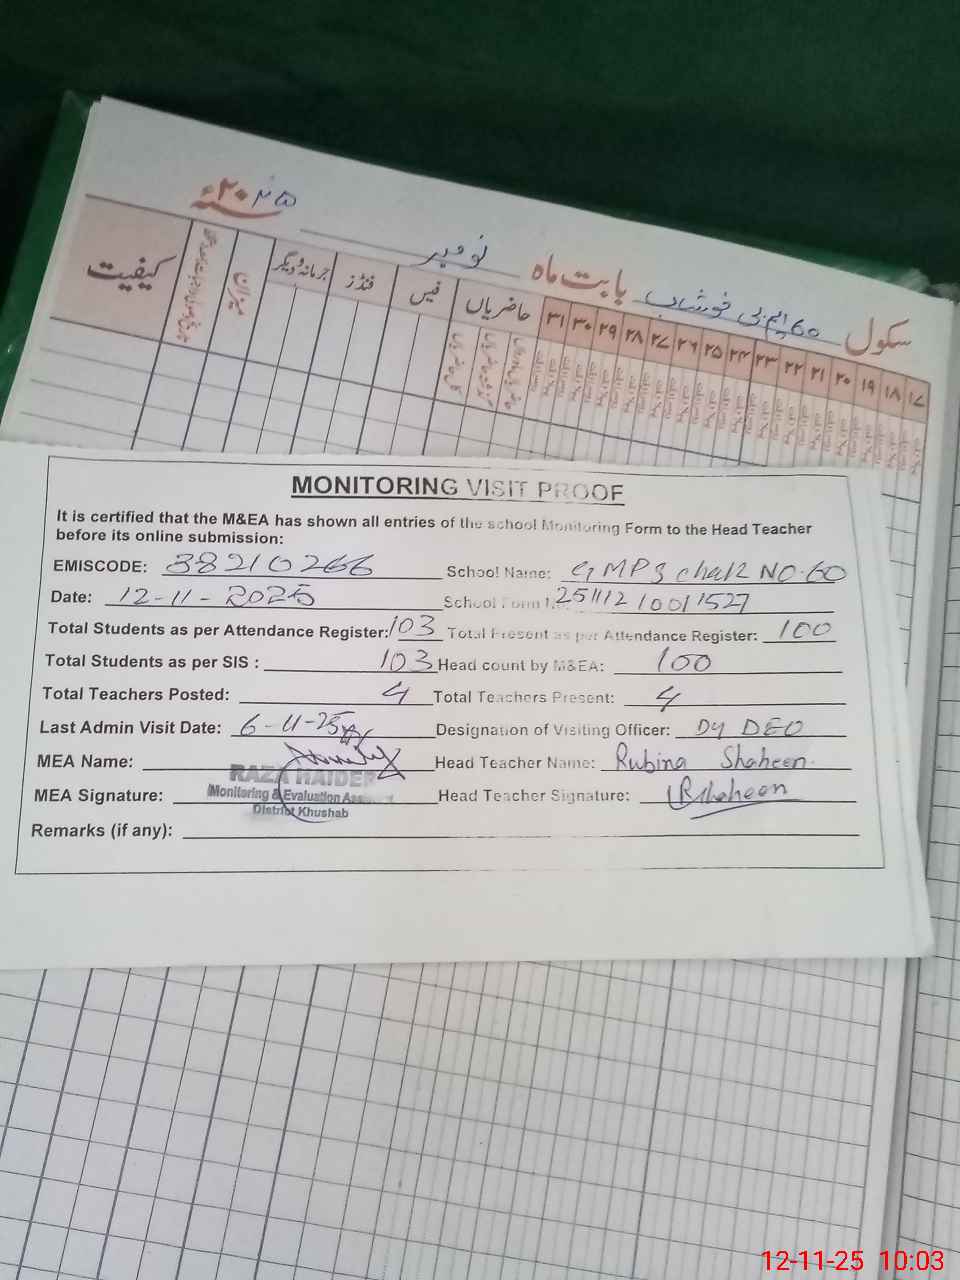 سنہ ۲۰۲۵
سکول ۶۰ ایم بی خوشاب بابت ماہ نومبر
کیفیت میزان جرمانہ و دیگر فنڈز فیس حاضریاں ۳۱ ۳۰ ۲۹ ۲۸ ۲۷ ۲۶ ۲۵ ۲۴ ۲۳ ۲۲ ۲۱ ۲۰ ۱۹ ۱۸ ۱۷
MONITORING VISIT PROOF
It is certified that the M&EA has shown all entries of the school Monitoring Form to the Head Teacher
before its online submission:
EMISCODE: 38210266 School Name: GMPS chak NO.60
Date: 12-11-2025 School Form No. 251112 10011527
Total Students as per Attendance Register: 103 Total Present as per Attendance Register: 100
Total Students as per SIS : 103 Head count by M&EA: 100
Total Teachers Posted: 4 Total Teachers Present: 4
Last Admin Visit Date: 6-11-25 Designation of Visiting Officer: Dy DEO
MEA Name: Head Teacher Name: Rubina Shaheen.
RAZA HAIDER
MEA Signature: Monitoring & Evaluation Assistant Head Teacher Signature: RShaheen
District Khushab
Remarks (if any):
12-11-25 10:03